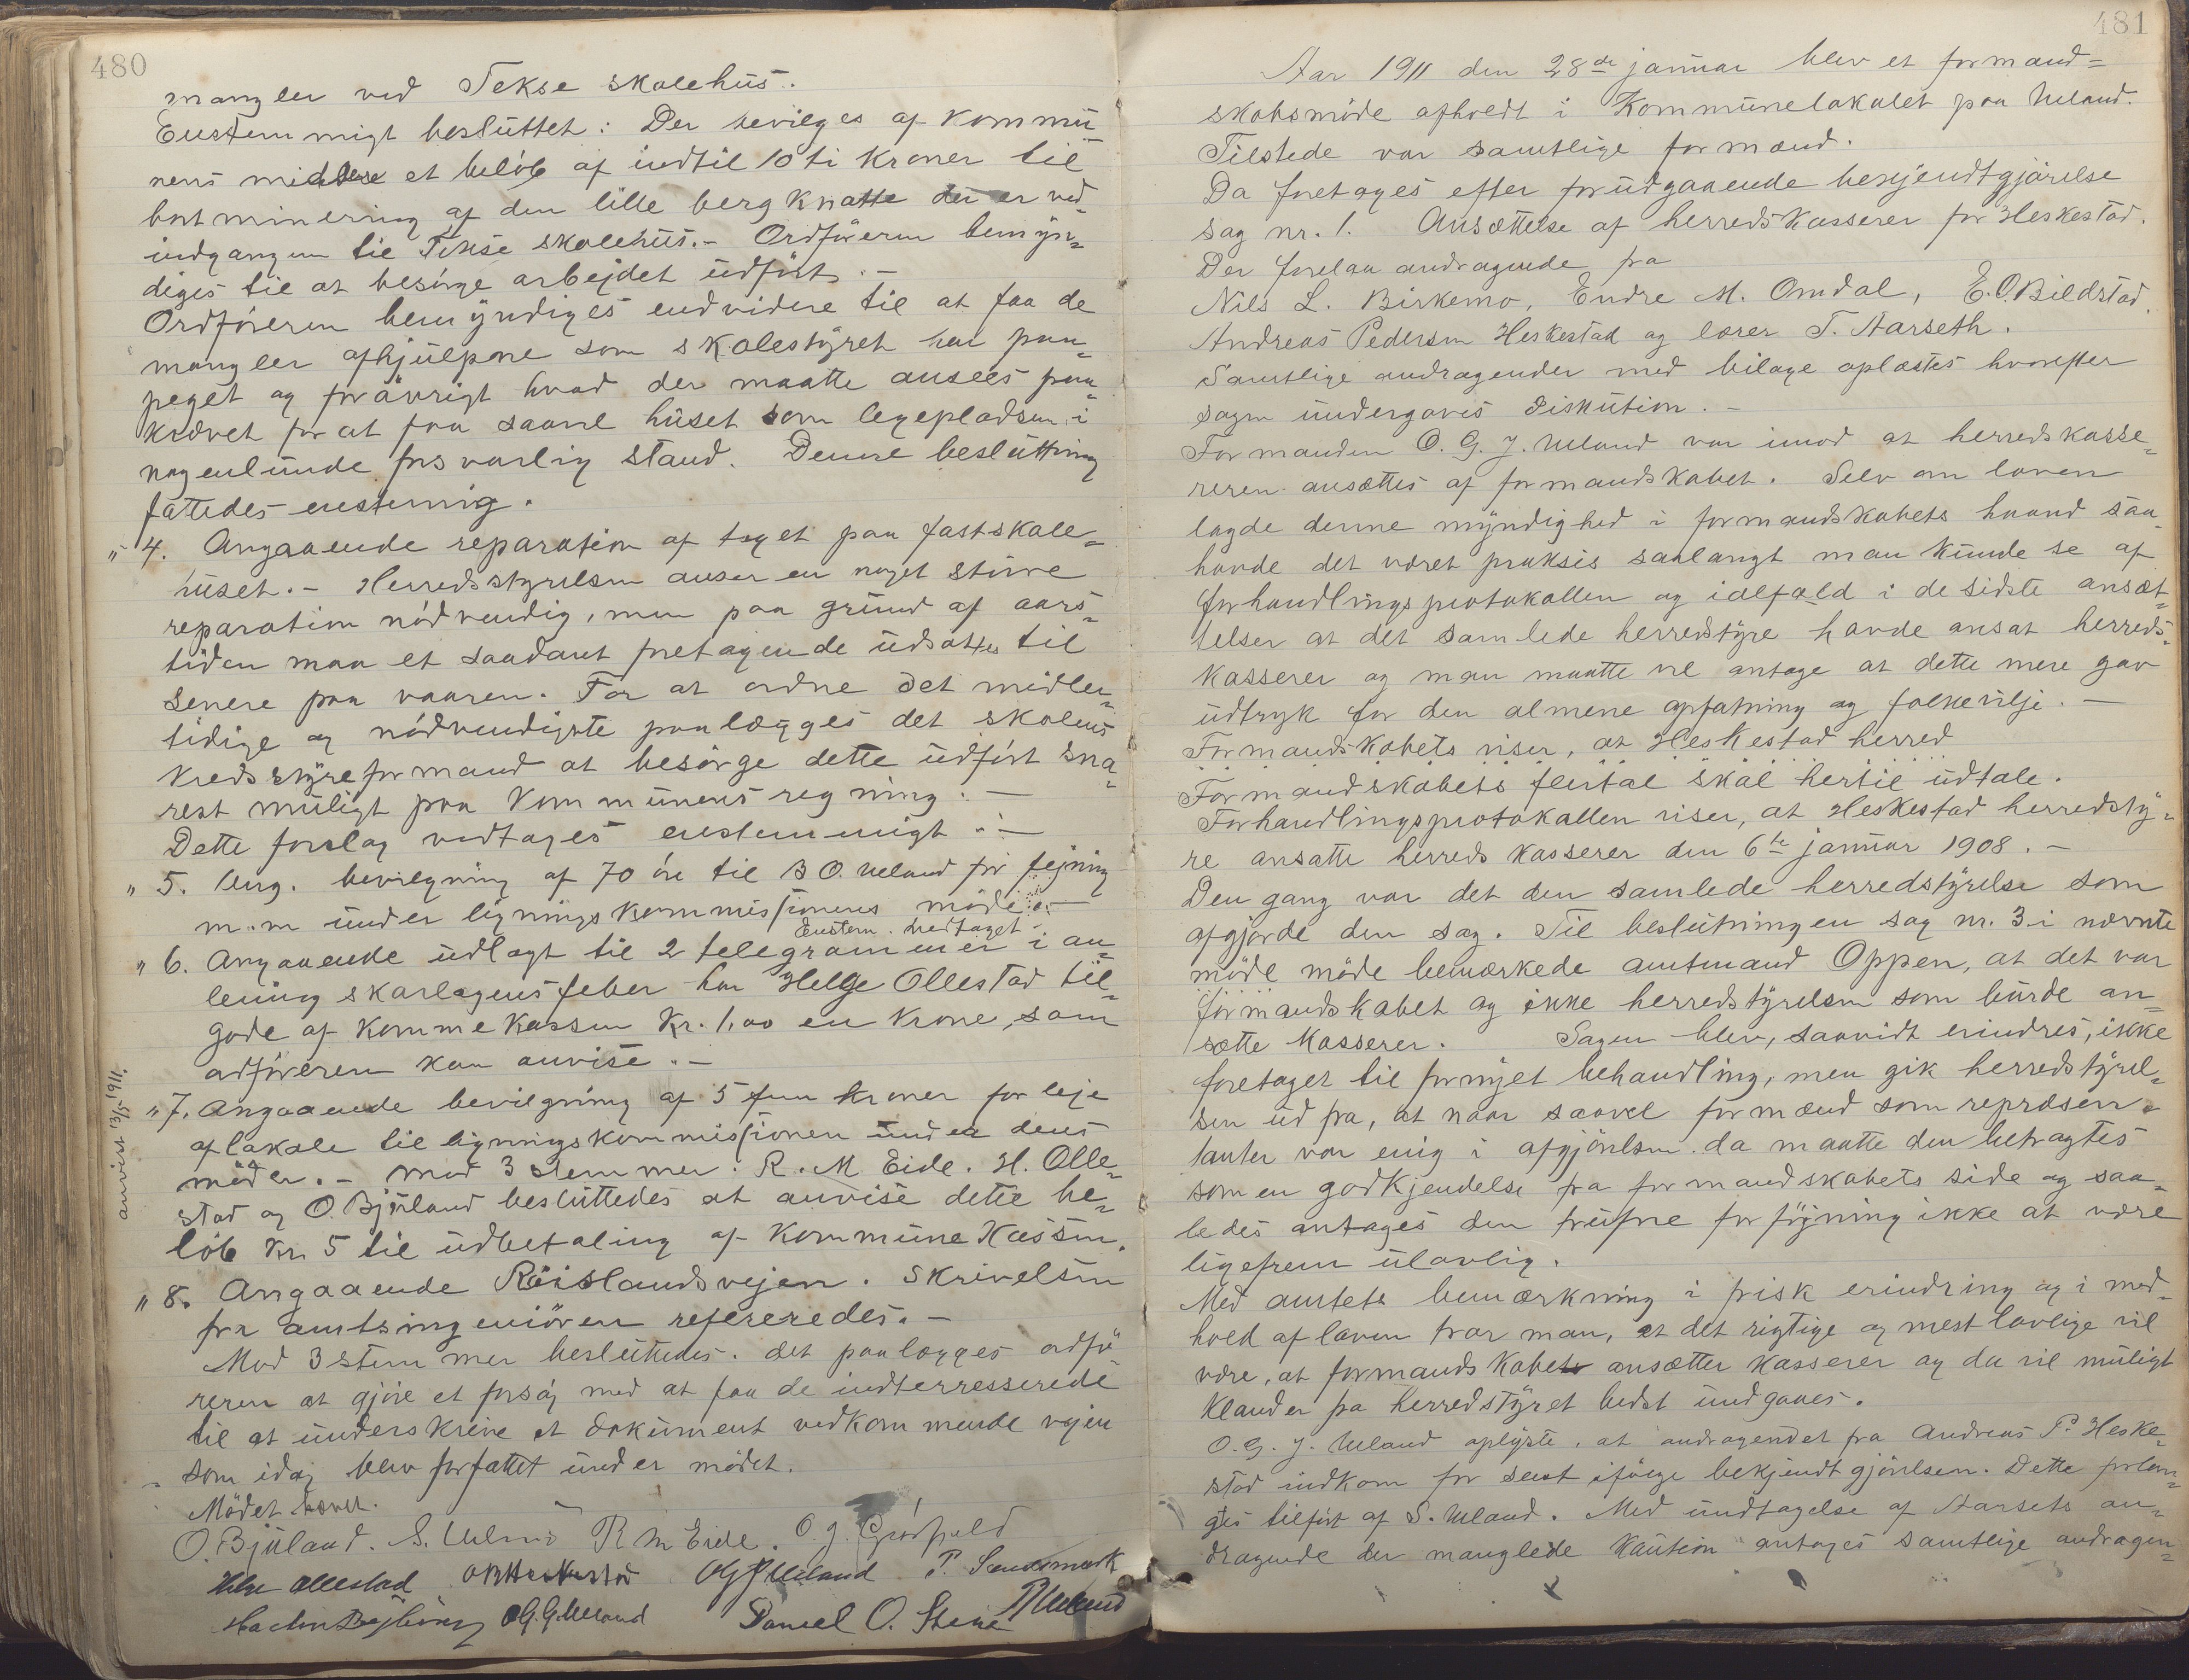 480
mangler ved Tekse skolehus.
Enstemmigt besluttet: Der bevilges af kommu-
nens midler et beløb af indtil 10 ti kroner til
bortminering af den lille bergknatte der er ved
indgangen til Tekse skolehus. - Ordføreren bemyn-
diges til at besørge arbejdet udført. -
Ordføreren bemyndiges endvidere til at faa de
mangler afhjulpne som skolestyret har paa-
peget og forøvrigt hvad der maatte ansees paa-
krævet for at faa saavel huset som legepladsen i
nogenlunde forsvarlig stand. Denne beslutning
fattedes enstemig.
" 4. Angaaende reparation af taget paa fastskole-
huset. - Herredsstyrelsen anser en noget større
reparation nødvendig, men paa grund af aars-
tiden maa et saadant foretagende udsættes til
senere paa vaaren. For at ordne det midler-
tidige og nødvendigste paalægges det skolens
kredsstyreformand at besørge dette udført sna-
rest muligt paa kommunens regning. -
Dette forslag vedtages enstemmigt. -
" 5. Ang. bevilgning af 70 øre til B O. Ueland for fejning
m.m under ligningskommissionens møde. -
Enstem. vedtaget -
" 6. Angaaende udlagt til 2 telegrammer i an-
lening skarlagensfeber har Helge Ollestad til-
gode af kommekassen Kr. 1,00 en krone, som
ordføreren kan anvise. -
anvist 13/5 1911.
" 7. Angaaende bevilgning af 5 fem kroner for leje
af lokale til ligningskommissionen under dens
møder. - Mod 3 stemmer. R. M Eide. H. Olle-
stad og O. Bjuland besluttedes at anvise dette be-
løb kr. 5 til udbetaling af kommunekassen.
" 8. Angaaende Røislandsvejen. Skrivelsen
fra amtsingeniøren refereredes. -
Mod 3 stemmer besluttedes. det paalægges ordfø-
reren at gjøre et forsøg med at faa de indterresserede
til at underskrive et dokument vedkommende vejen
som idag blev forfattet under mødet.
Mødet hævet.
O. Bjuland. S. Ueland R M Eide. O. J. Grøsfjeld
Helge Ollestad O R Heskestad O G J Ueland P. Sandsmark
O G. G. Ueland Daniel O. Steine P Ueland
481
Aar 1911 den 28de januar blev et formand-
skabsmøde afholdt i Kommunelokalet paa Ueland.
Tilstede var samtlige formænd.
Da foretages efter forudgaaende bekjendtgjørelse
Sag nr. 1. Ansættelse af herredskasserer for Heskestad.
Der forelaa andragende fra
Nils L. Birkemo, Endre M. Omdal, E. O. Bildstad,
Andreas Pedersen Heskestad og lærer T. Aarseth.
Samtlige andragender med bilage oplæstes hvorefter
sagen undergaves diskution. -
Formanden O. G. J. Ueland var imod at herredskasse-
reren ansættes af formandskabet. Selv om loven
lagde denne myndighed i formandskabets haand saa
havde det været praksis saalangt man kunde se af
forhandlingsprotokollen og ialfald i de sidste ansæt-
telser at det samlede herredstyre havde ansat herreds-
kasserer og man maatte vel antage at dette mere gav
udtryk for den almene opfatning og folkevilje. -
Formandskabets viser, at Heskestad herred
Formandskabets flertal skal hertil udtale.
Forhandlingsprotokollen viser, at Heskestad herredsty-
re ansatte herredskasserer den 6te januar 1908. -
Den gang var det den samlede herredstyrelse som
afgjorde den sag. Til beslutningen sag nr. 3 i nævnte
møde møde bemærkede amtmand Oppen, at det var
formandskabet og ikke herredstyrelsen som burde an-
sætte kasserer. Sagen blev, saavidt erindres, ikke
foretaget til fornyet behandling, men gik herredstyrel-
sen ud fra, at naar saavel formænd som repræsen-
tanter var enig i afgjørelsen da maatte den betragtes
som en godkjendelse fra formandskabets side og saa-
ledes antages den trufne forføjning ikke at være
ligefrem ulovlig.
Med amtets bemærkning i frisk erindring og i med-
hold af loven tror man, at det rigtige og mest lovlige vil
være, at formandskabet ansætter kasserer og da vil muligt
klander fra herredstyret bedst undgaaes.
O. G. J. Ueland oplyste, at andragendet fra Andreas P. Heske-
stad indkom for sent ifølge bekjendtgjørelsen. Dette forlan-
ges tilført af S. Ueland. Med undtagelse af Aarsets an-
dragende der manglede kaution antages samtlige andragen-